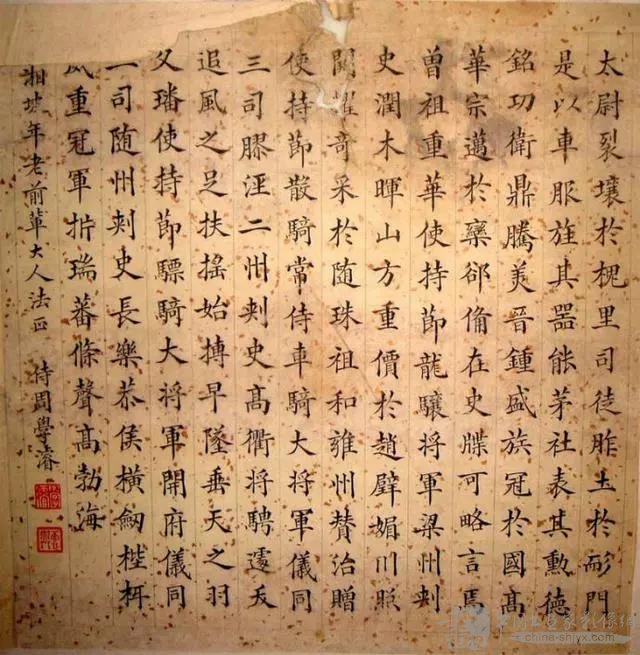 太尉裂壤於槐里司徒胙土於耏門
是以車服旌其器能茅社表其勲德
銘功衛鼎騰美晉鍾盛族冠於國髙
華宗邁於欒郤備在史牒可略言焉
曽祖重華使持節龍驤将軍梁州刾
史潤木暉山方重價於趙璧媚川照
闕耀竒采於随珠祖和雍州賛治贈
使持節散騎常侍車騎大将軍儀同
三司膠涇二州刾史髙衢将騁遽夭
追風之足扶搖始摶早墜垂天之羽
父璠使持節驃騎大将軍開府儀同
司随州刾史長樂恭侯橫劔桎梏
威重冠軍析瑞蕃條聲髙渤海
湘坡年老前輩大人法正 侍周學濬
china-shjyx.com